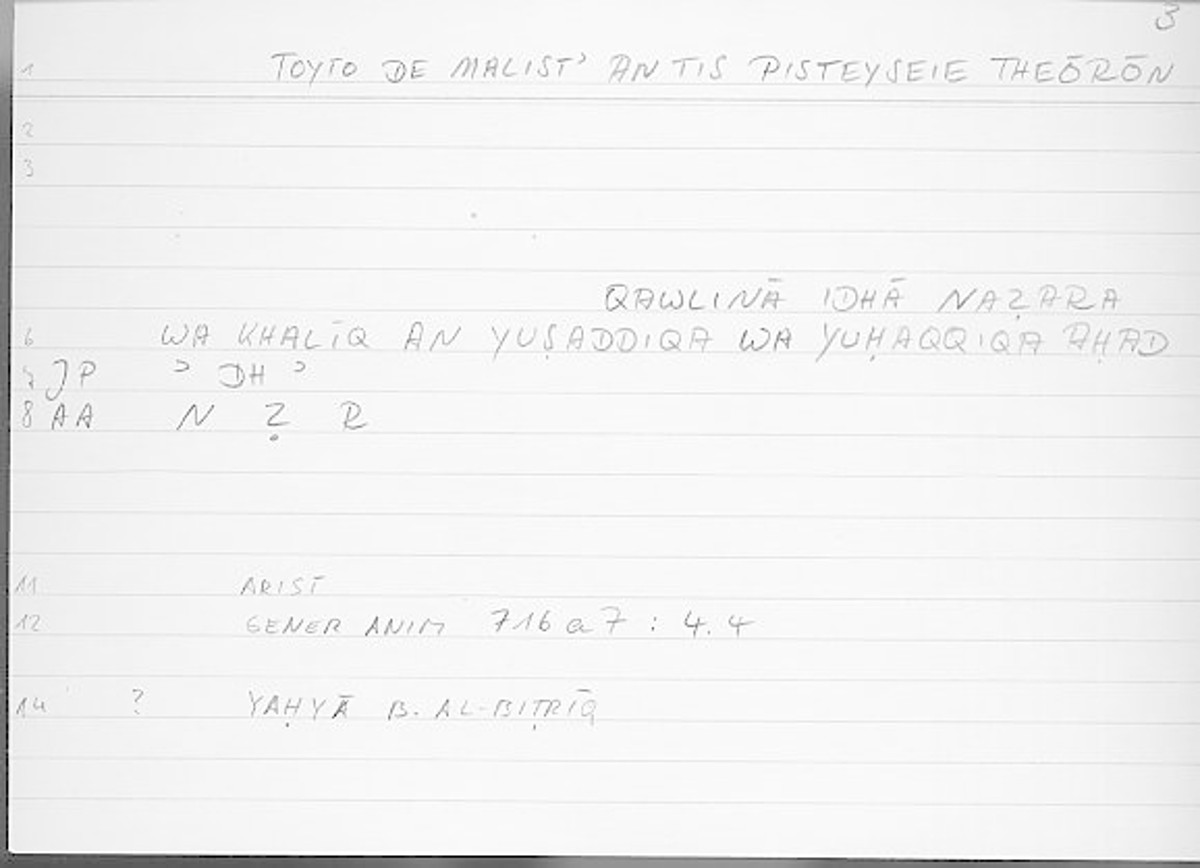 3
1 TOYTO DE MALIST' AN TIS PISTEYSEIE THEŌRŌN
2
3
QAWLINĀ IDHĀ NAẒARA
6 WA KHALĪQ AN YUṢADDIQA WA YUḤAQQIQA AḤAD
JP ʾ DH ʾ
8 AA N Ẓ R
11 ARIST
12 GENER ANIM 716 a 7 : 4.4
14 ? YAḤYĀ B. AL-BIṬRĪQ